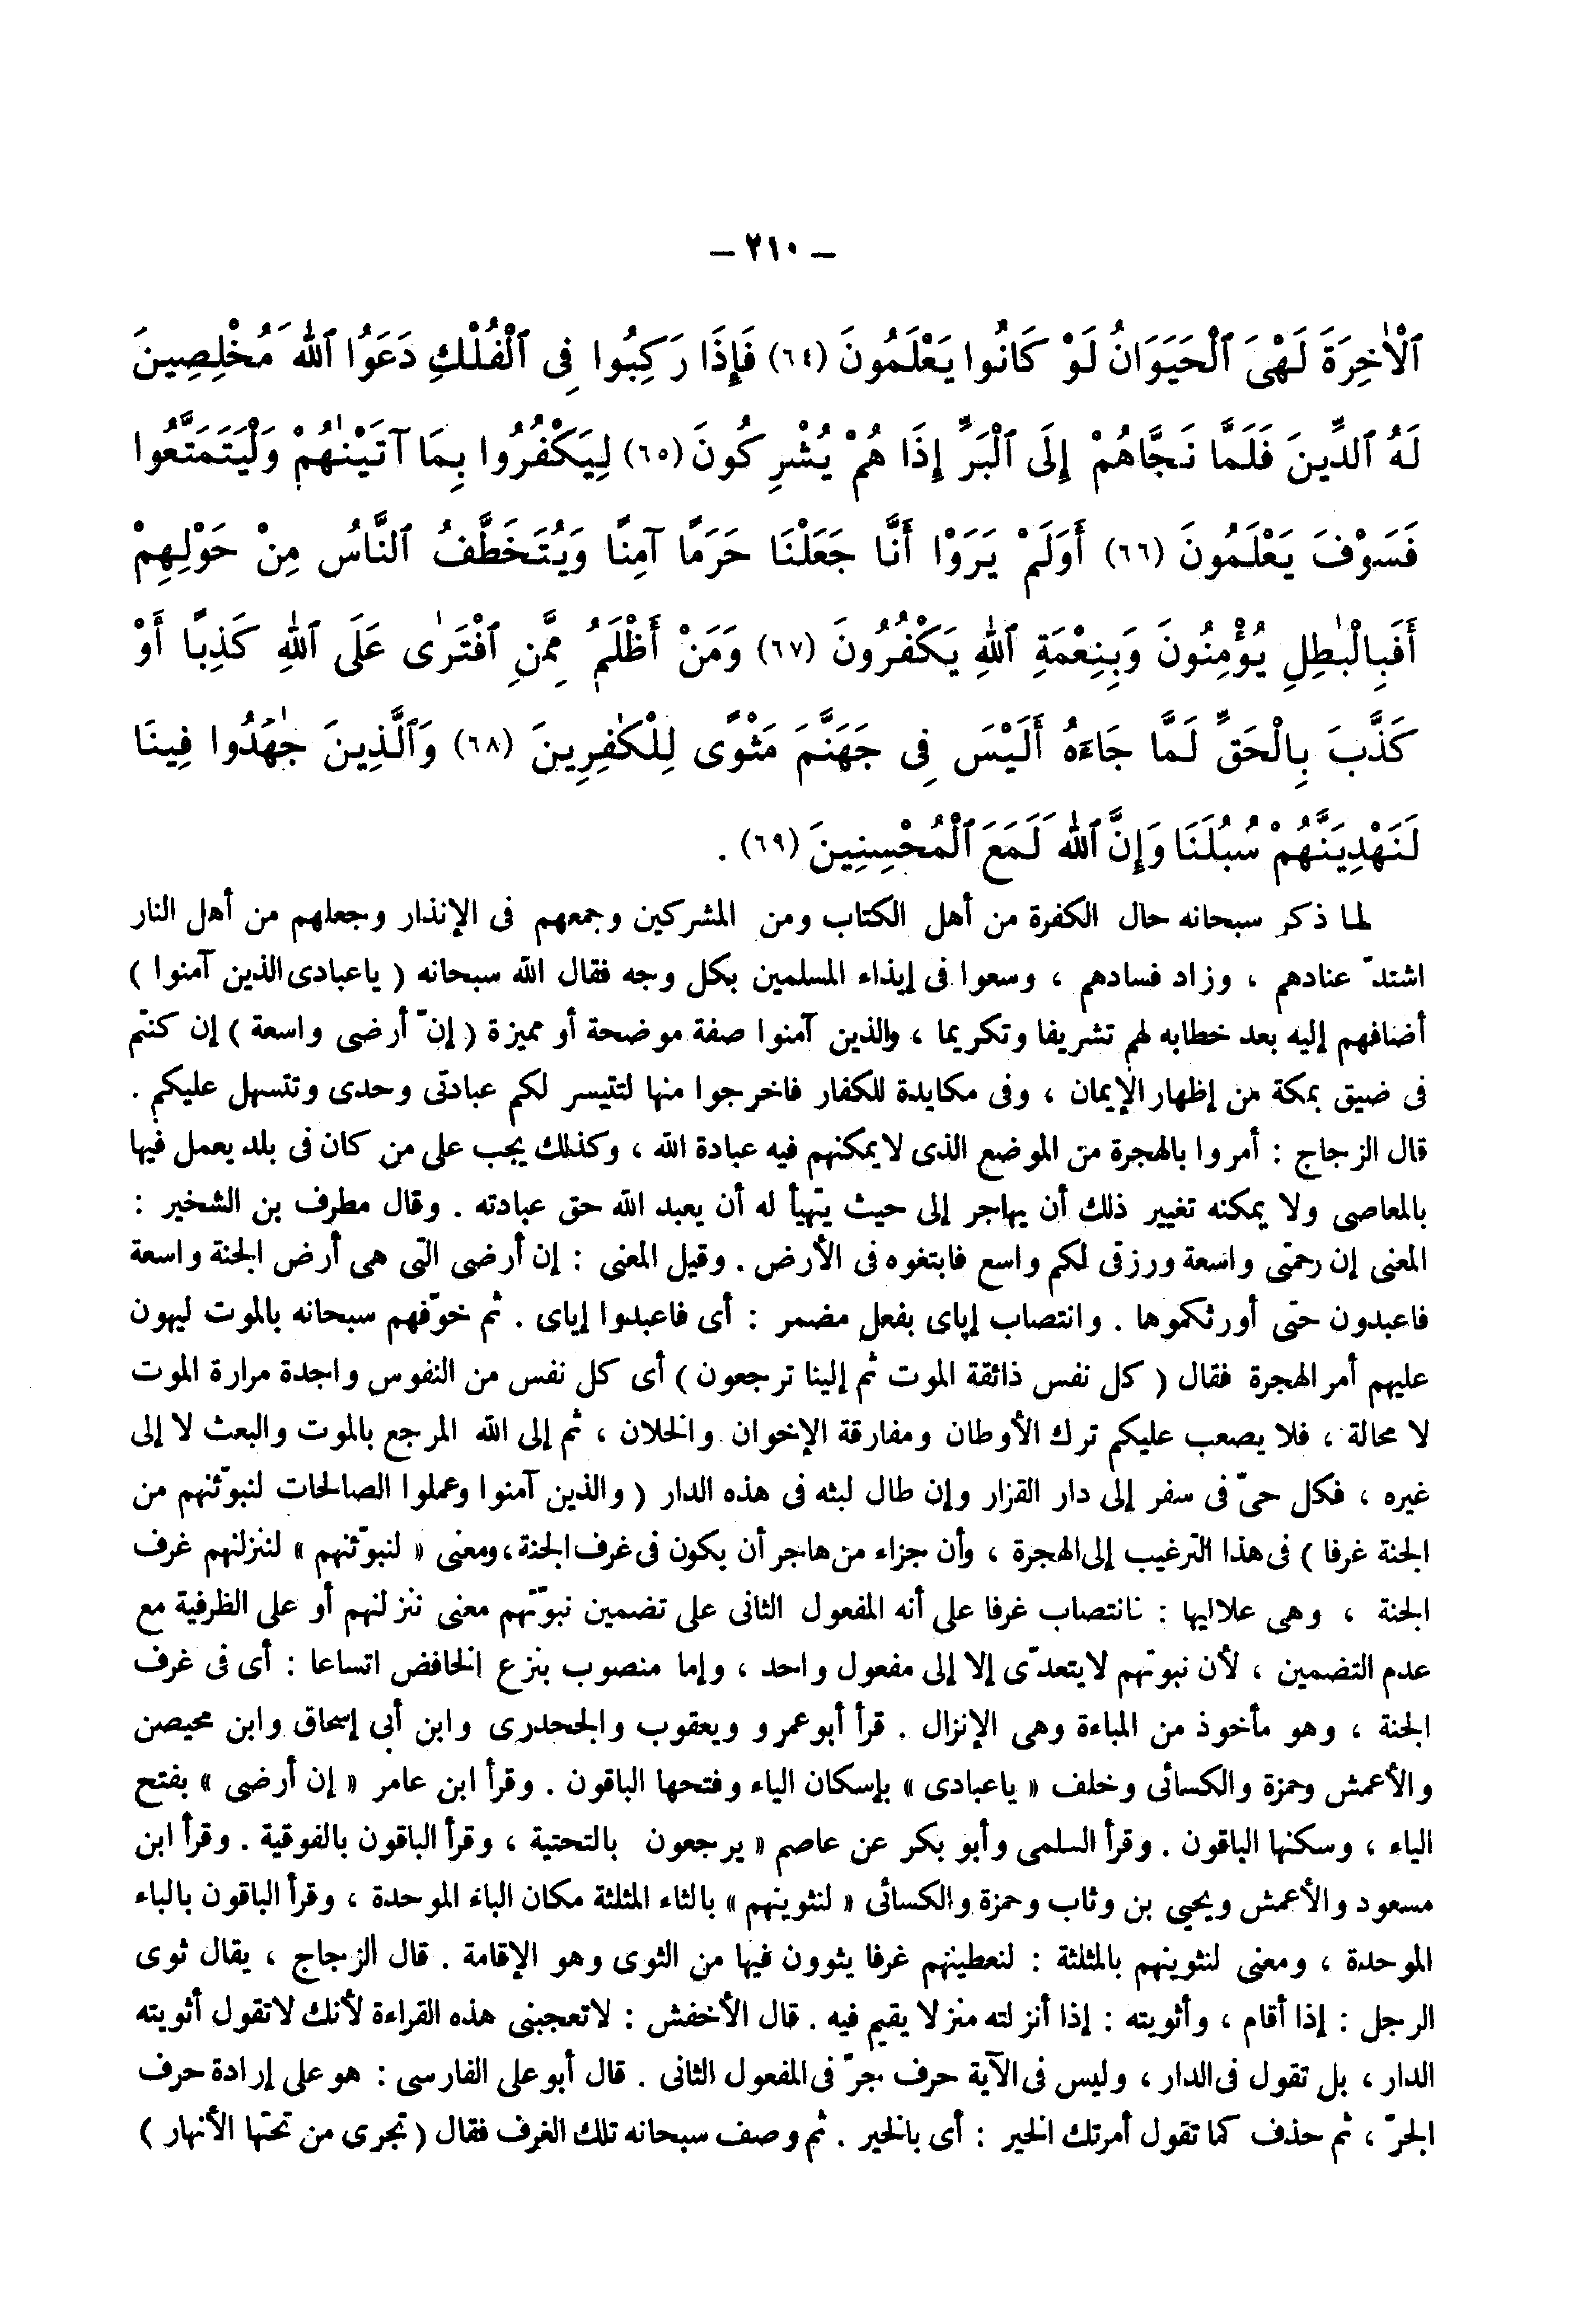 – ٢١٠ –
ٱلْأٰخِرَةَ لَهْىَ ٱلْحَيَوَانُ لَوْ كَانُوا يَعْلَمُونَ (٦٤) فَإِذَا رَكِبُوا فِى ٱلْفُلْكِ دَعَوُا ٱللهَ مُخْلِصِينَ
لَهُ ٱلدِّينَ فَلَمَّا نَجَّاهُمْ إِلَى ٱلْبَرِّ إِذَا هُمْ يُشْرِكُونَ (٦٥) لِيَكْفُرُوا بِمَا آتَيْنٰهُمْ وَلْيَتَمَتَّعُوا
فَسَوْفَ يَعْلَمُونَ (٦٦) أَوَلَمْ يَرَوْا أَنَّا جَعَلْنَا حَرَمًا آمِنًا وَيُتَخَطَّفُ ٱلنَّاسُ مِنْ حَوْلِهِمْ
أَفَبِالْبٰطِلِ يُؤْمِنُونَ وَبِنِعْمَةِ ٱللهِ يَكْفُرُونَ (٦٧) وَمَنْ أَظْلَمُ مِمَّنِ ٱفْتَرٰى عَلَى ٱللهِ كَذِبًا أَوْ
كَذَّبَ بِالْحَقِّ لَمَّا جَاءَهُ أَلَيْسَ فِى جَهَنَّمَ مَثْوًى لِلْكٰفِرِينَ (٦٨) وَٱلَّذِينَ جٰهَدُوا فِينَا
لَنَهْدِيَنَّهُمْ سُبُلَنَا وَإِنَّ ٱللهَ لَمَعَ ٱلْمُحْسِنِينَ (٦٩) .
لما ذكر سبحانه حال الكفرة من أهل الكتاب ومن المشركين وجمعهم فى الإنذار وجعلهم من أهل النار
اشتدّ عنادهم ، وزاد فسادهم ، وسعوا فى إيذاء المسلمين بكل وجه فقال الله سبحانه ( ياعبادى الذين آمنوا )
أضافهم إليه بعد خطابه لهم تشريفا وتكريما ، والذين آمنوا صفة موضحة أو مميزة ( إنّ أرضى واسعة ) إن كنتم
فى ضيق بمكة من إظهار الإيمان ، وفى مكايدة للكفار فاخرجوا منها لتتيسر لكم عبادتى وحدى وتتسهل عليكم .
قال الزجاج : أمروا بالهجرة من الموضع الذى لايمكنهم فيه عبادة الله ، وكذلك يجب على من كان فى بلد يعمل فيها
بالمعاصى ولا يمكنه تغيير ذلك أن يهاجر إلى حيث يتهيأ له أن يعبد الله حق عبادته . وقال مطرف بن الشخير :
المعنى إن رحمتى واسعة ورزقى لكم واسع فابتغوه فى الأرض . وقيل المعنى : إن أرضى التى هى أرض الجنة واسعة
فاعبدون حتى أورثكموها . وانتصاب إياى بفعل مضمر : أى فاعبدوا إياى . ثم خوّفهم سبحانه بالموت ليهون
عليهم أمر الهجرة فقال ( كل نفس ذائقة الموت ثم إلينا ترجعون ) أى كل نفس من النفوس واجدة مرارة الموت
لا محالة ، فلا يصعب عليكم ترك الأوطان ومفارقة الإخوان والخلان ، ثم إلى الله المرجع بالموت والبعث لا إلى
غيره ، فكل حىّ فى سفر إلى دار القرار وإن طال لبثه فى هذه الدار ( والذين آمنوا وعملوا الصالحات لنبوّئنهم من
الجنة غرفا ) فى هذا الترغيب إلى الهجرة ، وأن جزاء من هاجر أن يكون فى غرف الجنة، ومعنى « لنبوّئنهم » لننزلنهم غرف
الجنة ، وهى علاليها : فانتصاب غرفا على أنه المفعول الثانى على تضمين نبوّئهم معنى ننزلنهم أو على الظرفية مع
عدم التضمين ، لأن نبوئهم لايتعدّى إلا إلى مفعول واحد ، وإما منصوب بنزع الخافض اتساعا : أى فى غرف
الجنة ، وهو مأخوذ من المباءة وهى الإنزال . قرأ أبو عمرو ويعقوب والجحدرى وابن أبى إسحاق وابن محيصن
والأعمش وحمزة والكسائى وخلف « ياعبادى » بإسكان الياء وفتحها الباقون . وقرأ ابن عامر « إن أرضى » بفتح
الياء ، وسكنها الباقون . وقرأ السلمى وأبو بكر عن عاصم « يرجعون بالتحتية ، وقرأ الباقون بالفوقية . وقرأ ابن
مسعود والأعمش ويحيى بن وثاب وحمزة والكسائى « لنثوينهم » بالثاء المثلثة مكان الباء الموحدة ، وقرأ الباقون بالباء
الموحدة ، ومعنى لنثوينهم بالمثلثة : لنعطينهم غرفا يثوون فيها من الثوى وهو الإقامة . قال الزجاج ، يقال ثوى
الرجل : إذا أقام ، وأثويته : إذا أنزلته منزلا يقيم فيه . قال الأخفش : لاتعجبنى هذه القراءة لأنك لاتقول أثويته
الدار ، بل تقول فى الدار ، وليس فى الآية حرف جرّ فى المفعول الثانى . قال أبو على الفارسى : هو على إرادة حرف
الجرّ ، ثم حذف كما تقول أمرتك الخير : أى بالخير . ثم وصف سبحانه تلك الغرف فقال ( تجرى من تحتها الأنهار )